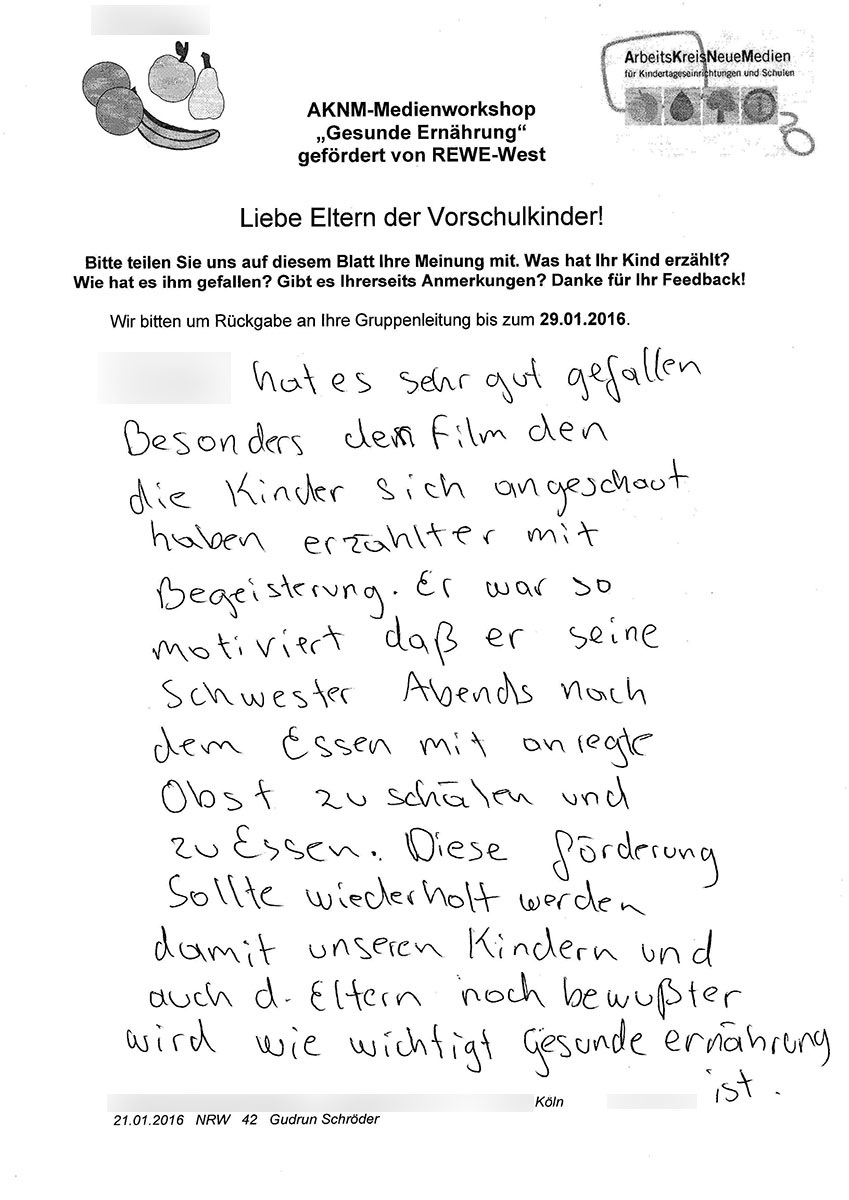 ArbeitsKreisNeueMedien
für Kindertageseinrichtungen und Schulen
AKNM-Medienworkshop
„Gesunde Ernährung“
gefördert von REWE-West
Liebe Eltern der Vorschulkinder!
Bitte teilen Sie uns auf diesem Blatt Ihre Meinung mit. Was hat Ihr Kind erzählt?
Wie hat es ihm gefallen? Gibt es Ihrerseits Anmerkungen? Danke für Ihr Feedback!
Wir bitten um Rückgabe an Ihre Gruppenleitung bis zum 29.01.2016.
hat es sehr gut gefallen
Besonders dem Film den
die Kinder sich angeschaut
haben erzählter mit
Begeisterung. Er war so
motiviert daß er seine
Schwester Abends nach
dem Essen mit anregte
Obst zu schälen und
zu Essen. Diese förderung
Sollte wiederholt werden
damit unseren Kindern und
auch d. Eltern noch bewußter
wird wie wichtigt Gesunde ernährung
ist.
Köln
21.01.2016 NRW 42 Gudrun Schröder